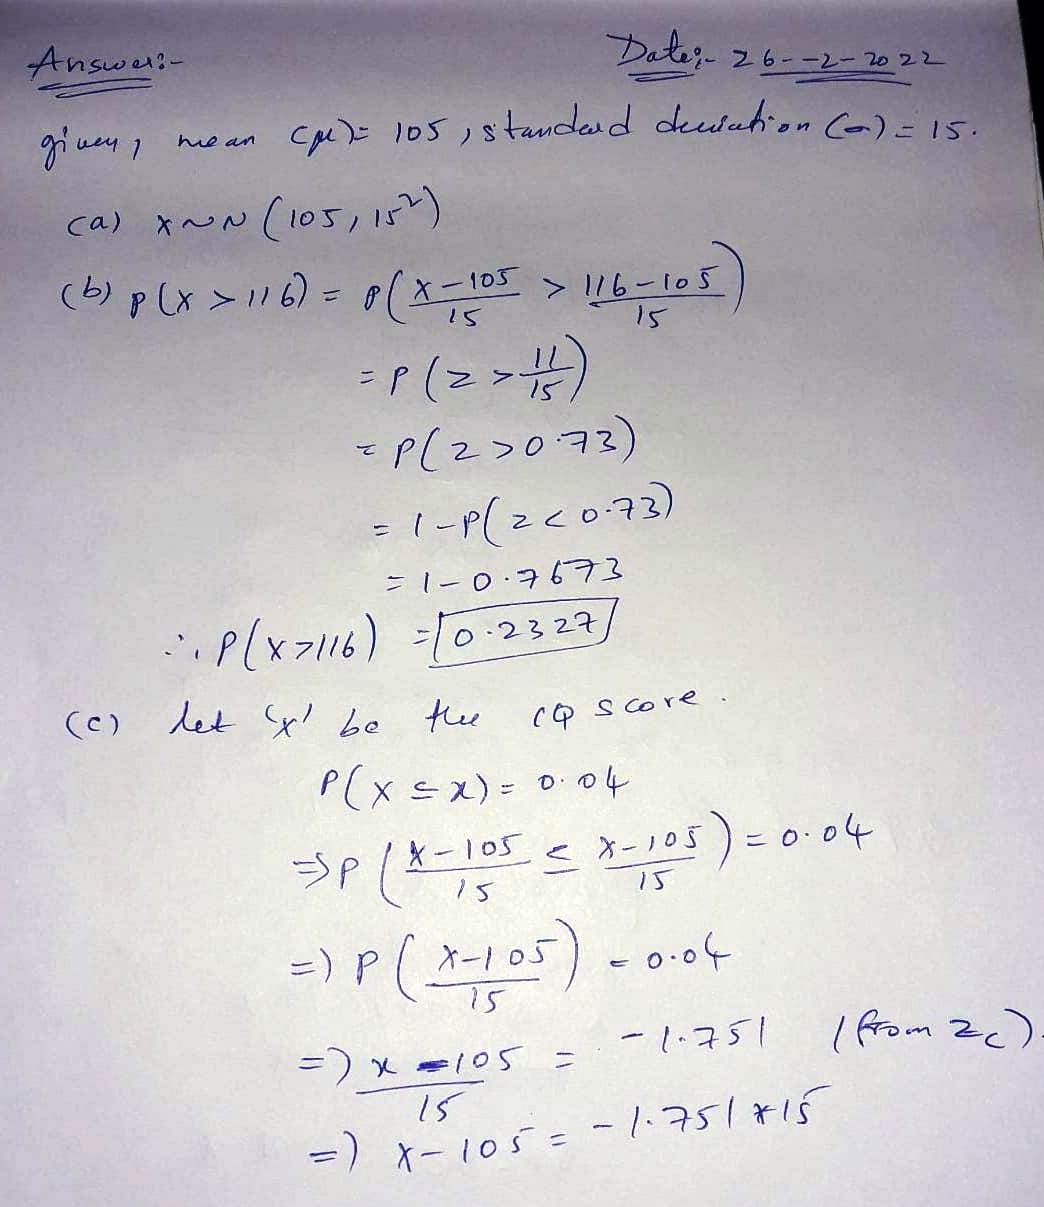 Answer:- Date:- 26--2-2022
given, mean (μ)= 105, standard deviation (σ) = 15.
(a) X~N (105, 15²)
(b) P(X > 116) = P(X-105/15 > 116-105/15)
= P(Z > 11/15)
= P(Z > 0.73)
= 1-P(Z < 0.73)
= 1-0.7673
∴ P(X>116) = 0.2327
(c) let 'x' be the IQ score.
P(X ≤ x) = 0.04
=> P(X-105/15 ≤ X-105/15) = 0.04
=) P(X-105/15) = 0.04
=) x-105/15 = -1.751 (from Zc).
=) X-105 = -1.751*15